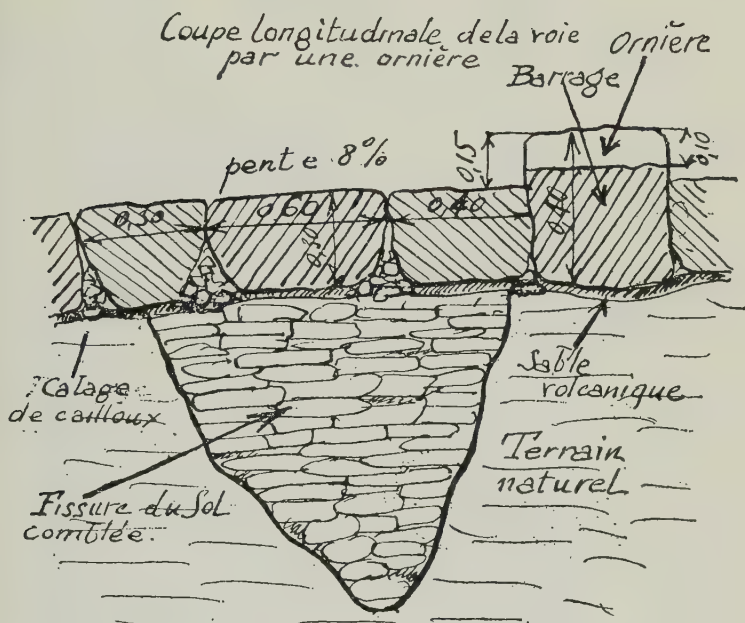 Coupe longitudinale de la voie
par une ornière
Ornière
Barrage
pente 8%
0,15
0,10
0,50
0,60
0,40
0,30
0,40
Calage
de cailloux
Sable
volcanique
Fissure du Sol
comblée.
Terrain
naturel